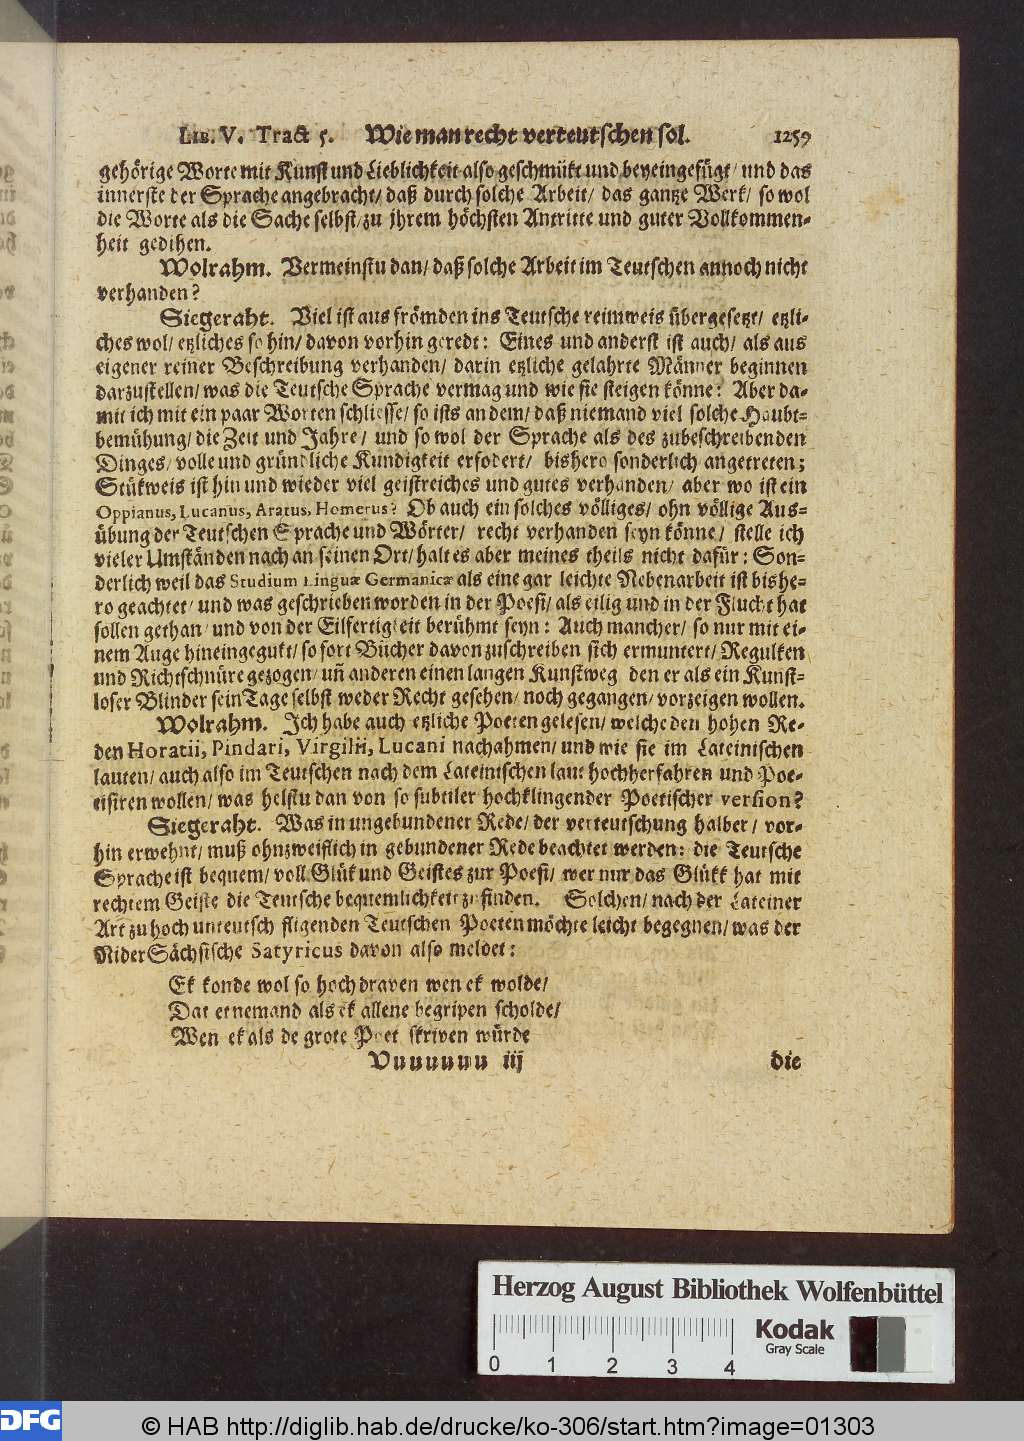 LIB. V. Tract 5. Wie man recht verteutschen sol. 1259
gehörige Worte mit Kunst und Lieblichkeit also geschmükt und beyeingefügt/ und das
innerste der Sprache angebracht/ daß durch solche Arbeit/ das gantze Werk/ so wol
die Worte als die Sache selbst/ zu jhrem höchsten Antritte und guter Vollkommen-
heit gedihen.
Wolrahm. Vermeinstu dan/ daß solche Arbeit im Teutschen annoch nicht
verhanden?
Siegeraht. Viel ist aus frömden ins Teutsche reimweis übergesetzt/ etzli-
ches wol/ etzliches so hin/ davon vorhin geredt: Eines und anderst ist auch/ als aus
eigener reiner Beschreibung verhanden/ darin etzliche gelahrte Männer beginnen
darzustellen/ was die Teutsche Sprache vermag und wie sie steigen könne: Aber da-
mit ich mit ein paar Worten schliesse/ so ists an dem/ daß niemand viel solche Haubt-
bemühung/ die Zeit und Jahre/ und so wol der Sprache als des zubeschreibenden
Dinges/ volle und gründliche Kündigkeit erfodert/ bishero sonderlich angetreten;
Stükweis ist hin und wieder viel geistreiches und gutes verhanden/ aber wo ist ein
Oppianus, Lucanus, Aratus, Homerus? Ob auch ein solches völliges/ ohn völlige Aus-
übung der Teutschen Sprache und Wörter/ recht verhanden seyn könne/ stelle ich
vieler Umständen nach an seinen Ort/ halt es aber meines theils nicht dafür: Son-
derlich weil das Studium Linguæ Germanicæ als eine gar leichte Nebenarbeit ist bishe-
ro geachtet/ und was geschrieben worden in der Poesi/ als eilig und in der Flucht hat
sollen gethan/ und von der Eilfertigkeit berühmt seyn: Auch mancher/ so nur mit ei-
nem Auge hineingegukt/ so fort Bücher davon zuschreiben sich ermuntert/ Regulken
und Richtschnüre gezogen/ uñ anderen einen langen Kunstweg den er als ein Kunst-
loser Blinder sein Tage selbst weder Recht gesehen/ noch gegangen/ vorzeigen wollen.
Wolrahm. Ich habe auch etzliche Poeten gelesen/ welche den hohen Re-
den Horatii, Pindari, Virgilii, Lucani nachahmen/ und wie sie im Lateinischen
lauten/ auch also im Teutschen nach dem Lateinischen laut hochherfahren und Poe-
eisiren wollen/ was helstu dan von so subtiler hochklingender Poetischer version?
Siegeraht. Was in ungebundener Rede/ der verteutschung halber/ vor-
hin erwehnt/ muß ohnzweiflich in gebundener Rede beachtet werden: die Teutsche
Sprache ist bequem/ voll Glük und Geistes zur Poesi/ wer nur das Glükk hat mit
rechtem Geiste die Teutsche bequemlichkeit zufinden. Solchen/ nach der Lateiner
Art zu hoch unteutsch fligenden Teutschen Poeten möchte leicht begegnen/ was der
NiderSächsische Satyricus davon also meldet:
Ek konde wol so hoch draven wen ek wolde/
Dat et nemand als ek allene begripen scholde/
Wen ek als de grote Poet skriven würde
Vuuuuuu iij die
Herzog August Bibliothek Wolfenbüttel
0 1 2 3 4
Kodak
Gray Scale
DFG © HAB http://diglib.hab.de/drucke/ko-306/start.htm?image=01303